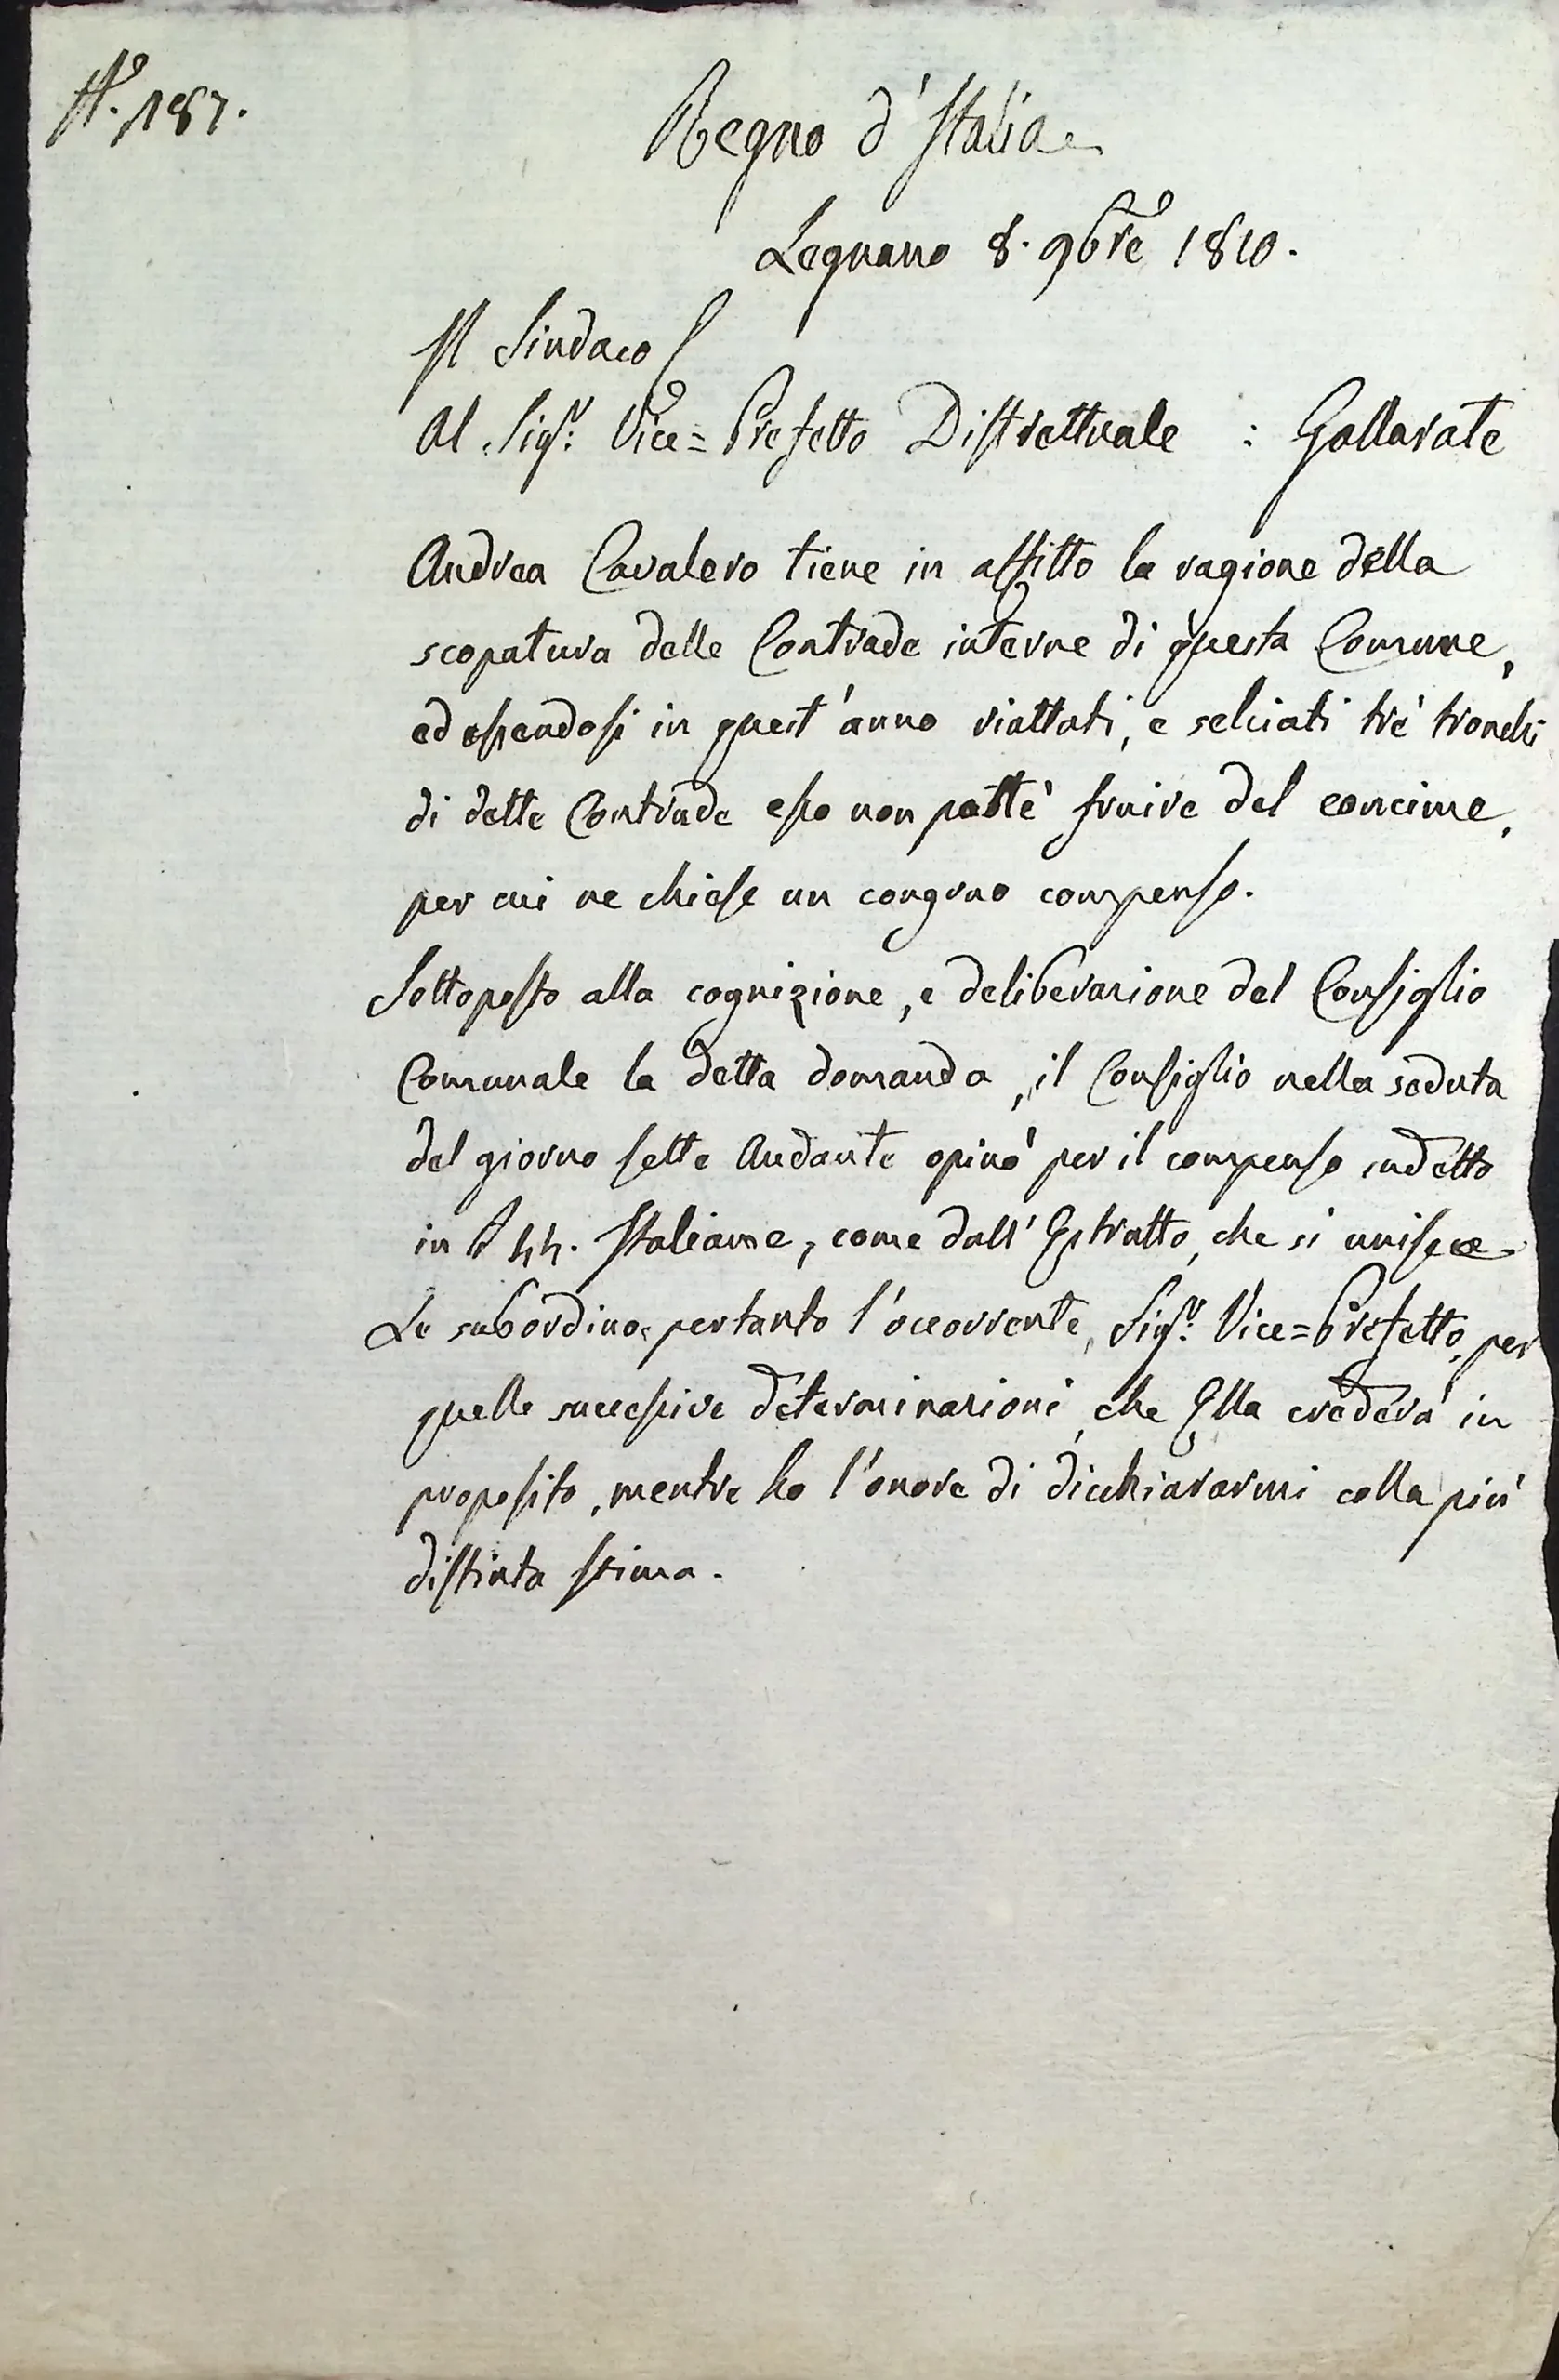 N.° 187.
Regno d'Italia
Legnano 8. 9bre 1810.
Il Sindaco
Al Sigr. Vice=Prefetto Distrettuale : Gallarate
Andrea Cavalero tiene in affitto la ragione della
scopatura delle Contrade interne di questa Comune,
ed essendosi in quest'anno riattati, e selciati trè tronchi
di dette Contrade esso non pottè fruire del concime,
per cui ne chiese un congruo compenso.
Sottoposto alla cognizione, e deliberazione del Consiglio
Comunale la detta domanda, il Consiglio nella seduta
del giorno sette Andante opinò per il compenso sudetto
in £ 44. Italiane, come dall'Estratto, che si unisce.
Le subordino pertanto l'occorrente, Sigr. Vice=Prefetto, per
quelle successive determinazioni, che Ella crederà in
proposito, mentre ho l'onore di dicchiararmi colla più
distinta stima.